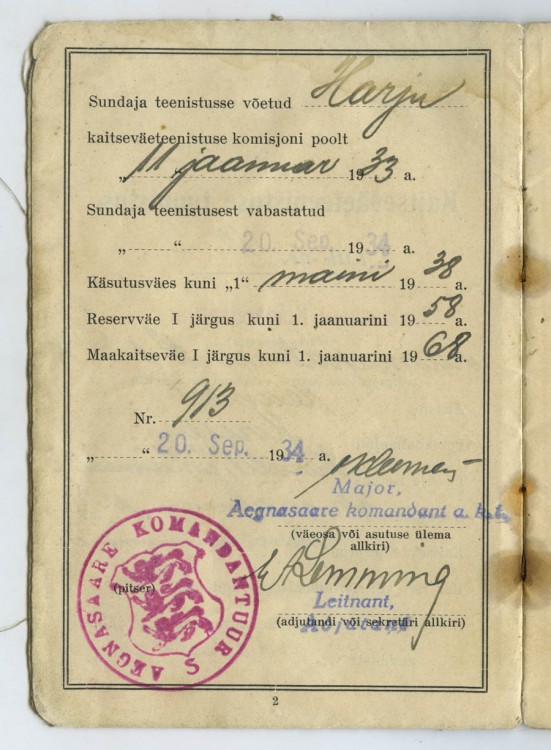 Sundaja teenistusse võetud Harju
kaitseväeteenistuse komisjoni poolt
„ 11 “ jaanuar 1933 a.
Sundaja teenistusest vabastatud
„ “ 20 Sep. 1934 a.
Käsutusväes kuni „1“ maini 1938 a.
Reservväe I järgus kuni 1. jaanuarini 1958 a.
Maakaitseväe I järgus kuni 1. jaanuarini 1968 a.
Nr. 913
„ “ 20 Sep. 1934 a.
Major,
Aegnasaare komandant a. k. t.
(väeosa või asutuse ülema
allkiri)
Lemming
Leitnant,
Adjutant
(adjutandi või sekretäri allkiri)
(pitser)
AEGNASAARE KOMANDANTUUR S
2